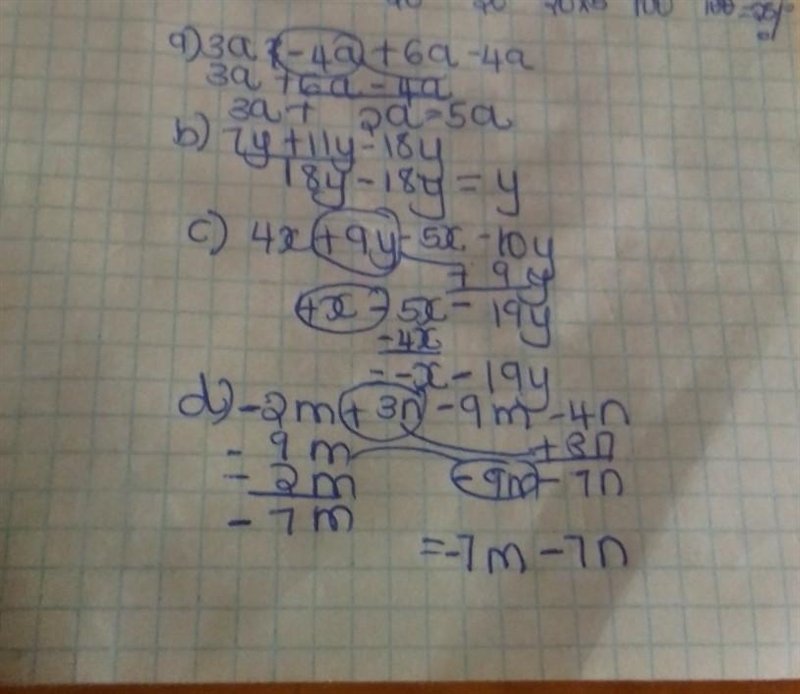 a) 3a - 4a + 6a - 4a
3a + 6a - 4a
3a + 2a = 5a
b) 7y + 11y - 18y
18y - 18y = y
c) 4x + 9y - 5x - 10y
+ 9y
4x - 5x - 19y
- 4x
= -x - 19y
d) -2m + 3n - 9m - 4n
- 9m + 3n
- 2m - 9m - 7n
- 7m
= -7m - 7n